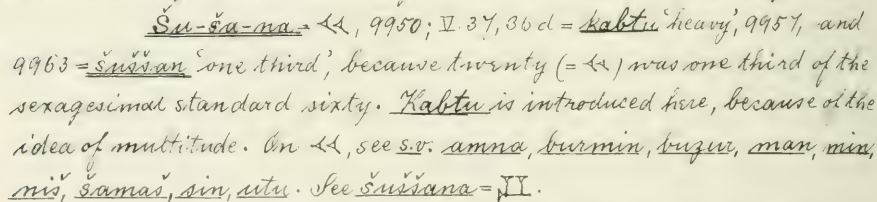 Šu-ša-na = 𒎙, 9950; V. 37, 36 d = kabtu 'heavy', 9957, and
9963 = šuššan 'one third', because twenty (= 𒎙) was one third of the
sexagesimal standard sixty. Kabtu is introduced here, because of the
idea of multitude. On 𒎙, see s.v. amna, burmin, buzur, man, min,
niš, šamaš, sin, utu. See šuššana =